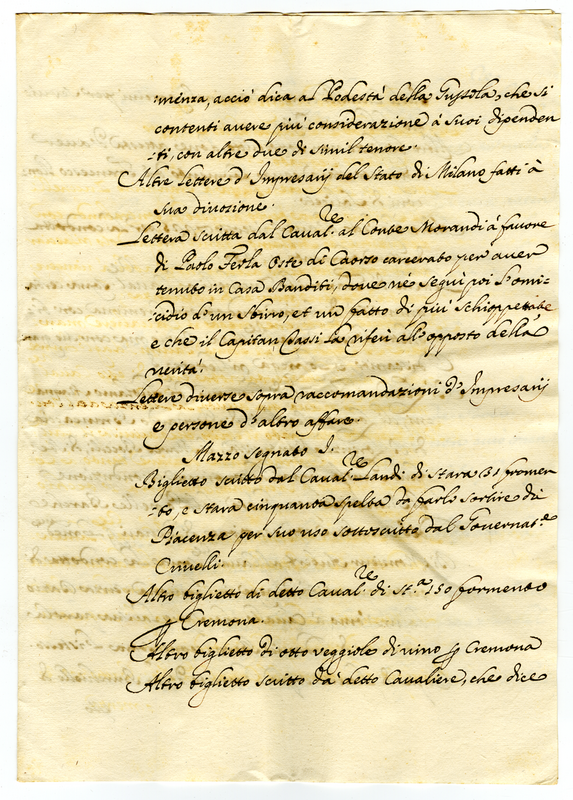 menza, acciò dica al Podestà della Gussola, che si
contenti avere più considerazione à suoi dipenden
-ti, con altre due di simil tenore.
Altre Lettere d'Impresarij del Stato di Milano fatti à
sua divozione.
Lettera scritta dal Caval.re al Conte Morandi à favore
di Paolo Ferla Oste di Caorso carcerato per aver
tenuto in Casa Banditi, dove né seguì poi l'omi-
cidio d'un Sbirro, et un fatto di più schioppettate
e che il Capitan Cassi la riferì all'opposto della
verità.
Lettere diverse sopra raccomandazioni d'Impresarij
e persone d'altro affare.
Mazzo segnato J.
Biglietto scritto dal Caval.re Landi di stara 31 fromen
-to, e stara cinquanta spelta da farle sortire di
Piacenza per suo uso sottoscritto dal Governat.re
Crivelli.
Altro biglietto di detto Caval.re di St.a 150 formento
p Cremona.
Altro biglietto di otto veggiole di vino p Cremona
Altro biglietto scritto da detto Cavaliere, che dice